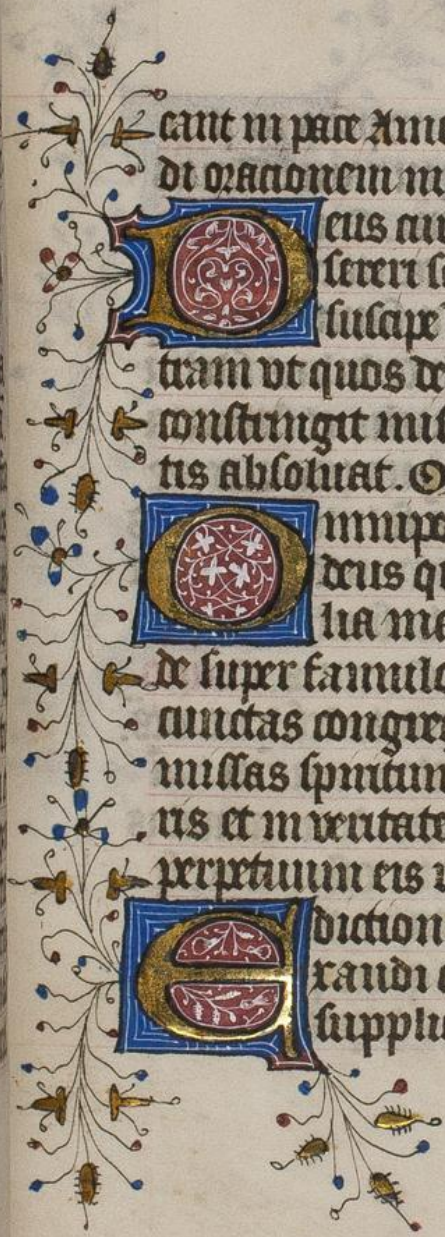 cant in pace Ame
di orationem m
Deus cui
sereri
suscipe
tram vt quos de
constringit mis
tis absoluat. O
Omnipo
deus qu
lia ma
de super famulo
cunctas congre
missas spiritum
ris et in veritate
perpetuum eis
diction
Exaudi
supplic